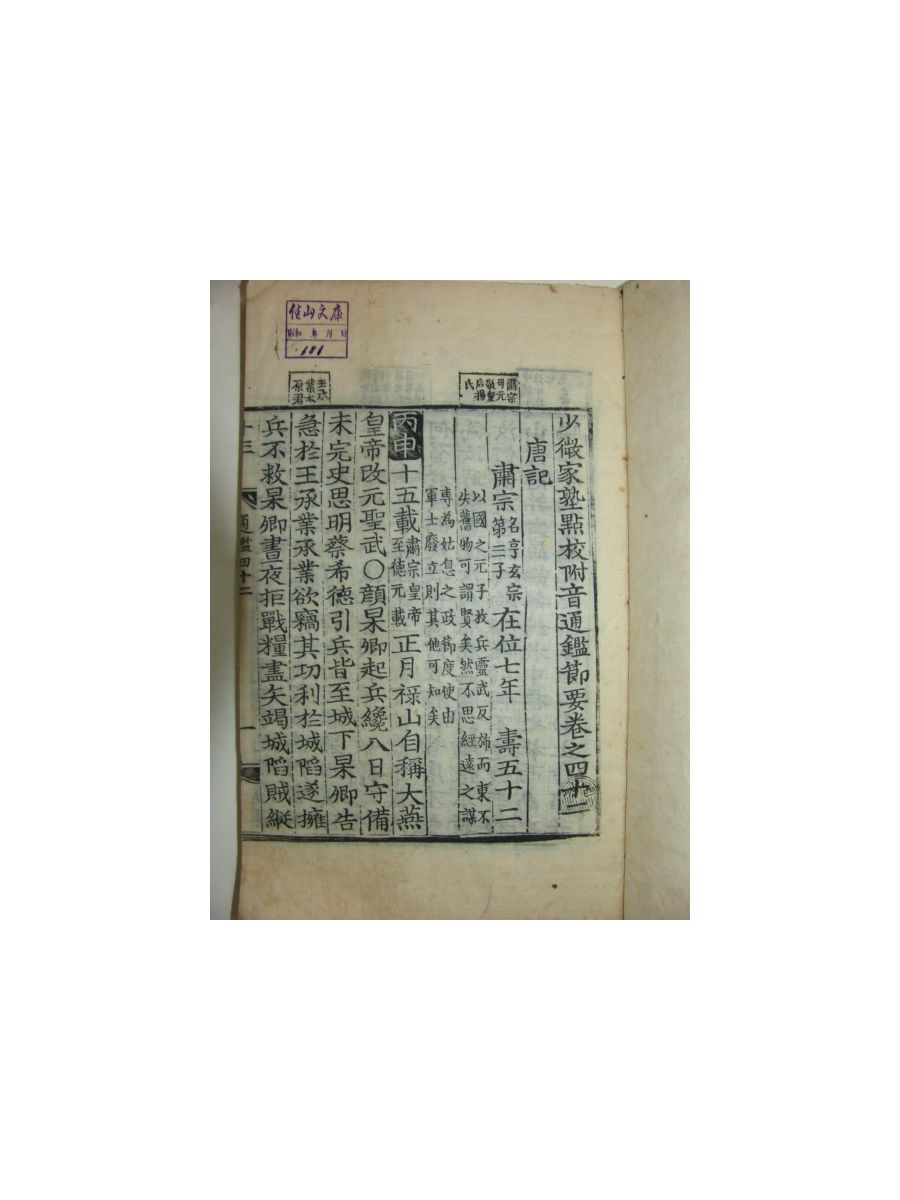 少微家塾點校附音通鑑節要卷之四十二
唐記
肅宗 名亨玄宗第三子 在位七年 壽五十二
以國之元子敌兵靈武反旆而東不
失舊物可謂賢矣然不思經遠之謀
專為姑息之政節度使由
軍士廢立則其他可知矣
丙申 十五載 肅宗皇帝至德元載 正月祿山自稱大燕
皇帝改元聖武〇顔杲卿起兵纔八日守備
未完史思明蔡希德引兵皆至城下杲卿告
急於王承業承業欲竊其功利於城陷遂擁
兵不救杲卿晝夜拒戰糧盡矢竭城陷賊縱
通鑑四十二
一
肅宗
后楊
氏
王承
業太
原君
文庫
年月日
181